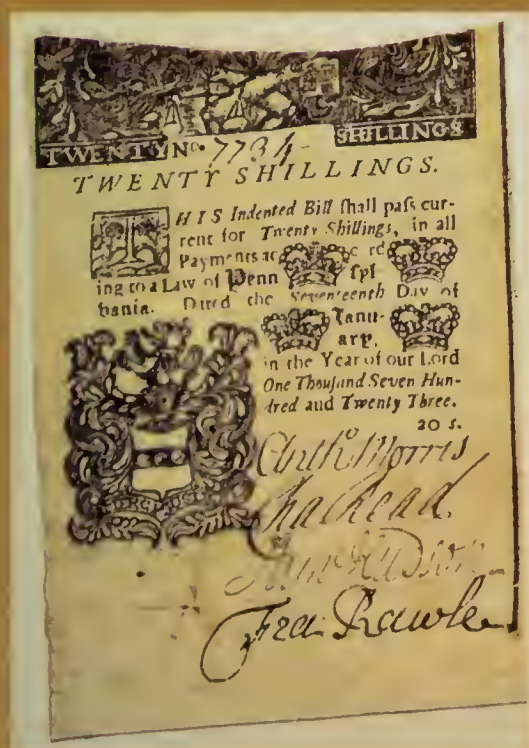 TWENTY No. 7734 SHILLINGS
TWENTY SHILLINGS.
THIS Indented Bill ſhall paſs cur-
rent for Twenty Shillings, in all
Payments ac c rd
ing to a Law of Penn ſyl
bania. Dated the Seventeenth Day of
Janu-
ary,
in the Year of our Lord
One Thouſand Seven Hun-
dred and Twenty Three.
20 s.
Anth. Morris
Cha Read
Hudson
Fra: Rawle